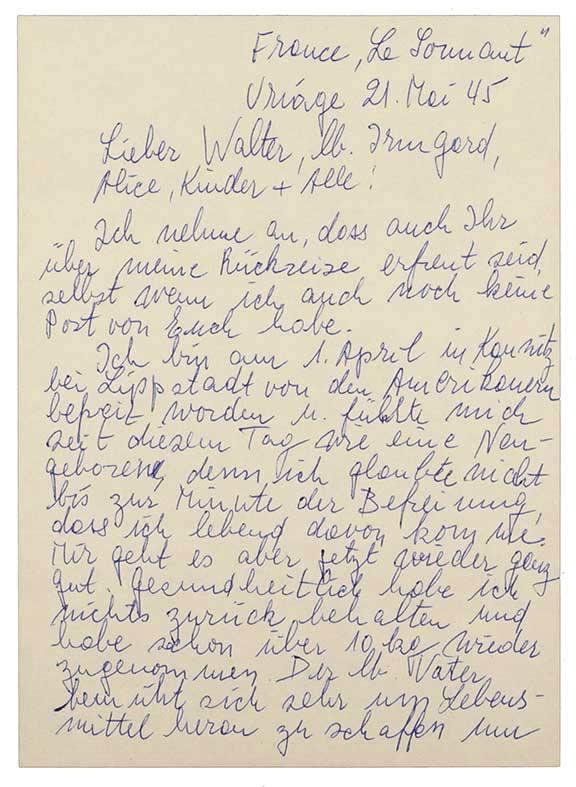 France, „Le Sonnant"
Uriage 21. Mai 45
Lieber Walter, lb. Irmgard,
Alice, Kinder + Alle!
Ich nehme an, dass auch Ihr
über meine Rückreise erfreut seid,
selbst wenn ich auch noch keine
Post von Euch habe.
Ich bin am 1. April in Kaunitz
bei Lippstadt von den Amerikanern
befreit worden u. fühlte mich
seit diesem Tag wie eine Neu-
geborene, denn ich glaubte nicht
bis zur Minute der Befreiung,
dass ich lebend davon komme.
Mir geht es aber jetzt wieder ganz
gut. Gesundheitlich habe ich
nichts zurück behalten und
habe schon über 10 kg wieder
zugenommen. Der lb. Vater
bemüht sich sehr um Lebens-
mittel heran zu schaffen um